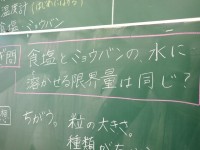 温度計
食塩 ミョウバン
問 食塩とミョウバンの、水に
溶かせる限界量は同じ?
ちがう。粒の大きさ。
種類が